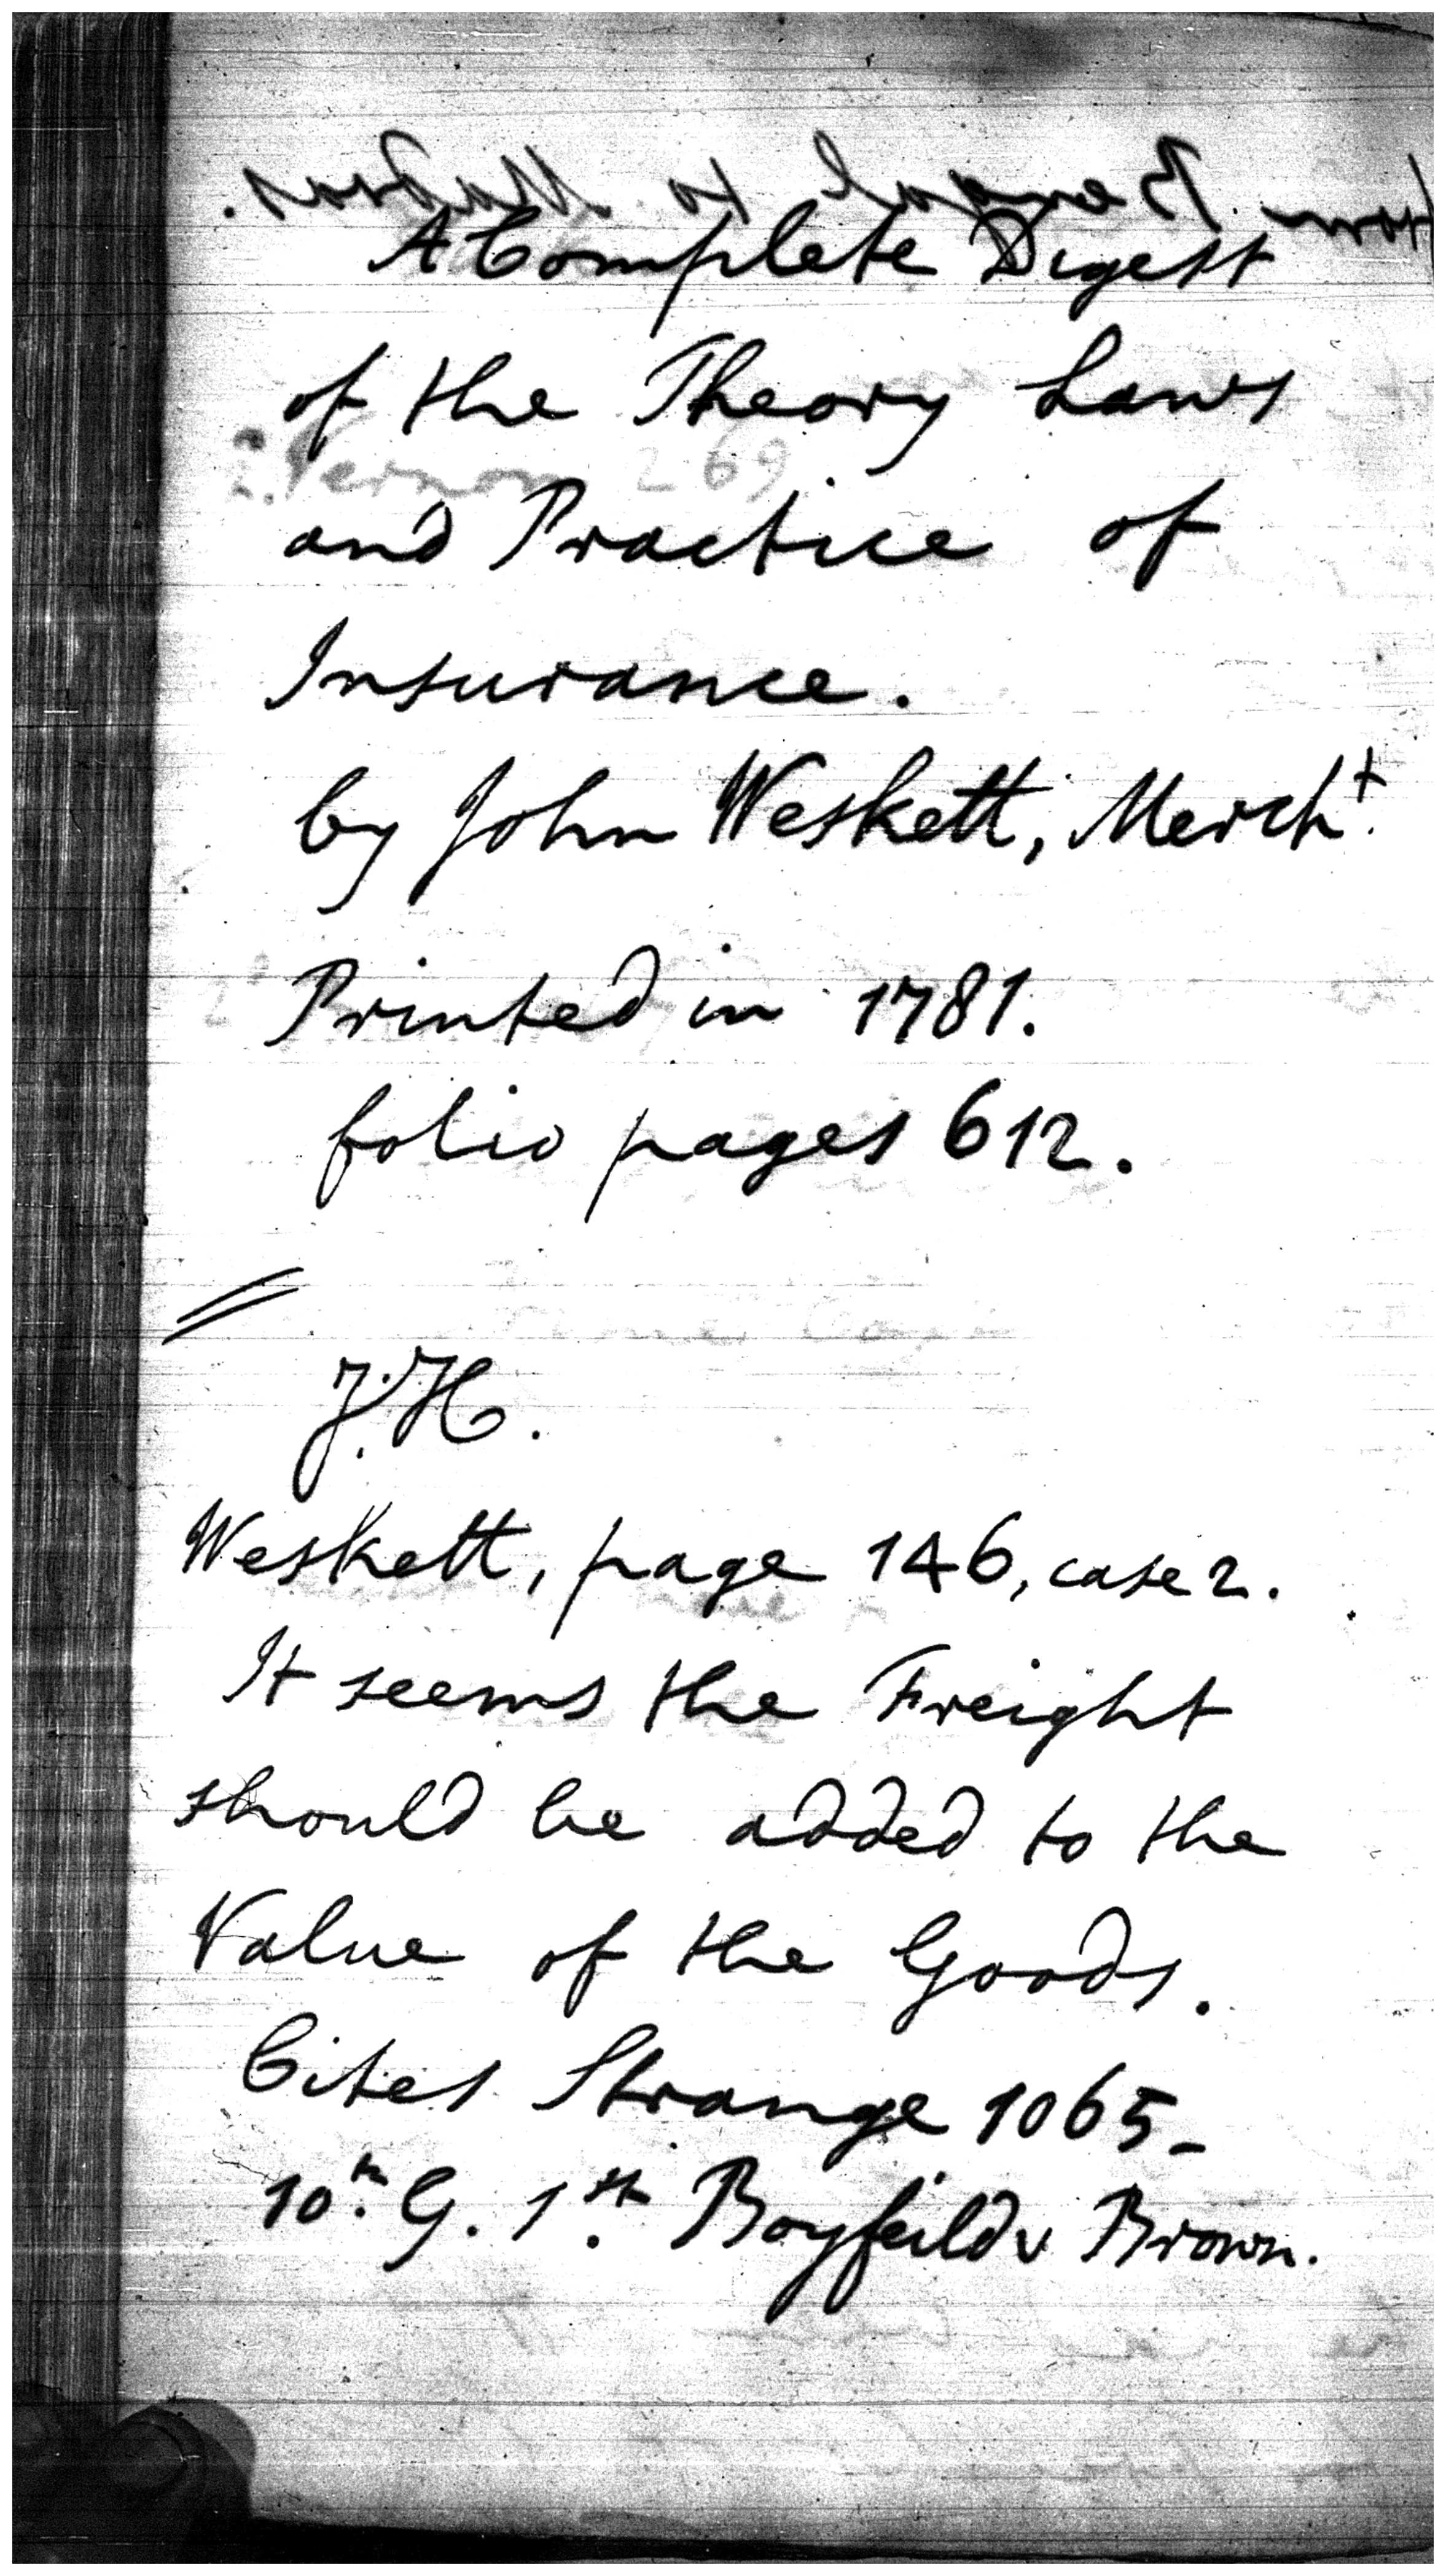 from Bengal to Madras.
A Complete Digest
of the Theory Laws
2. Vernon 269.
and Practice of
Insurance.
by John Weskett, Mercht.
Printed in 1781.
folio pages 612.
J.H.
Weskett, page 146, case 2.
It seems the Freight
should be added to the
Value of the Goods.
Cites Strange 1065_
10th. G. 1st. Boyfeild v Brown.